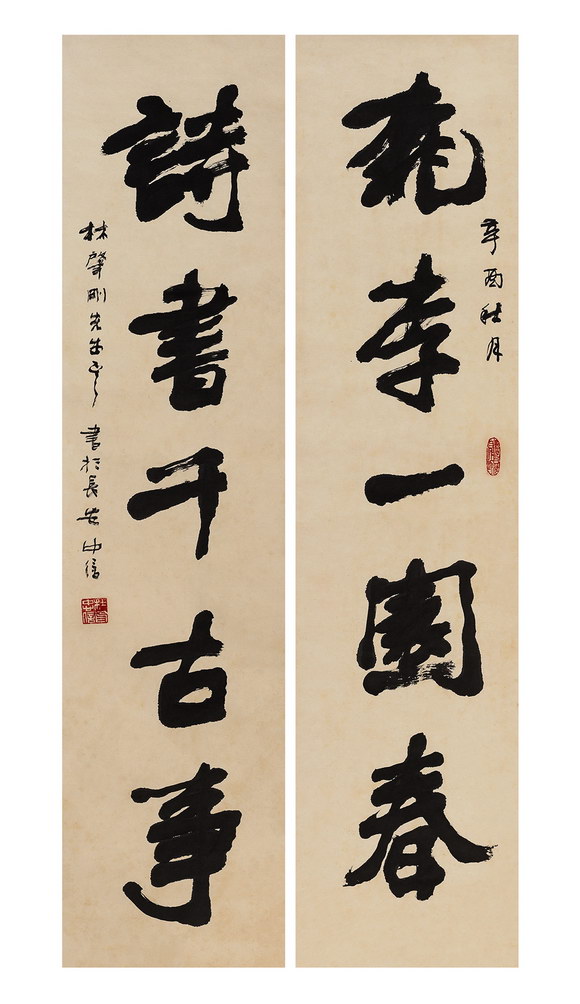 辛酉秋月
桃李一園春
詩書千古事
林肇剛先生正之 書於長安 中信